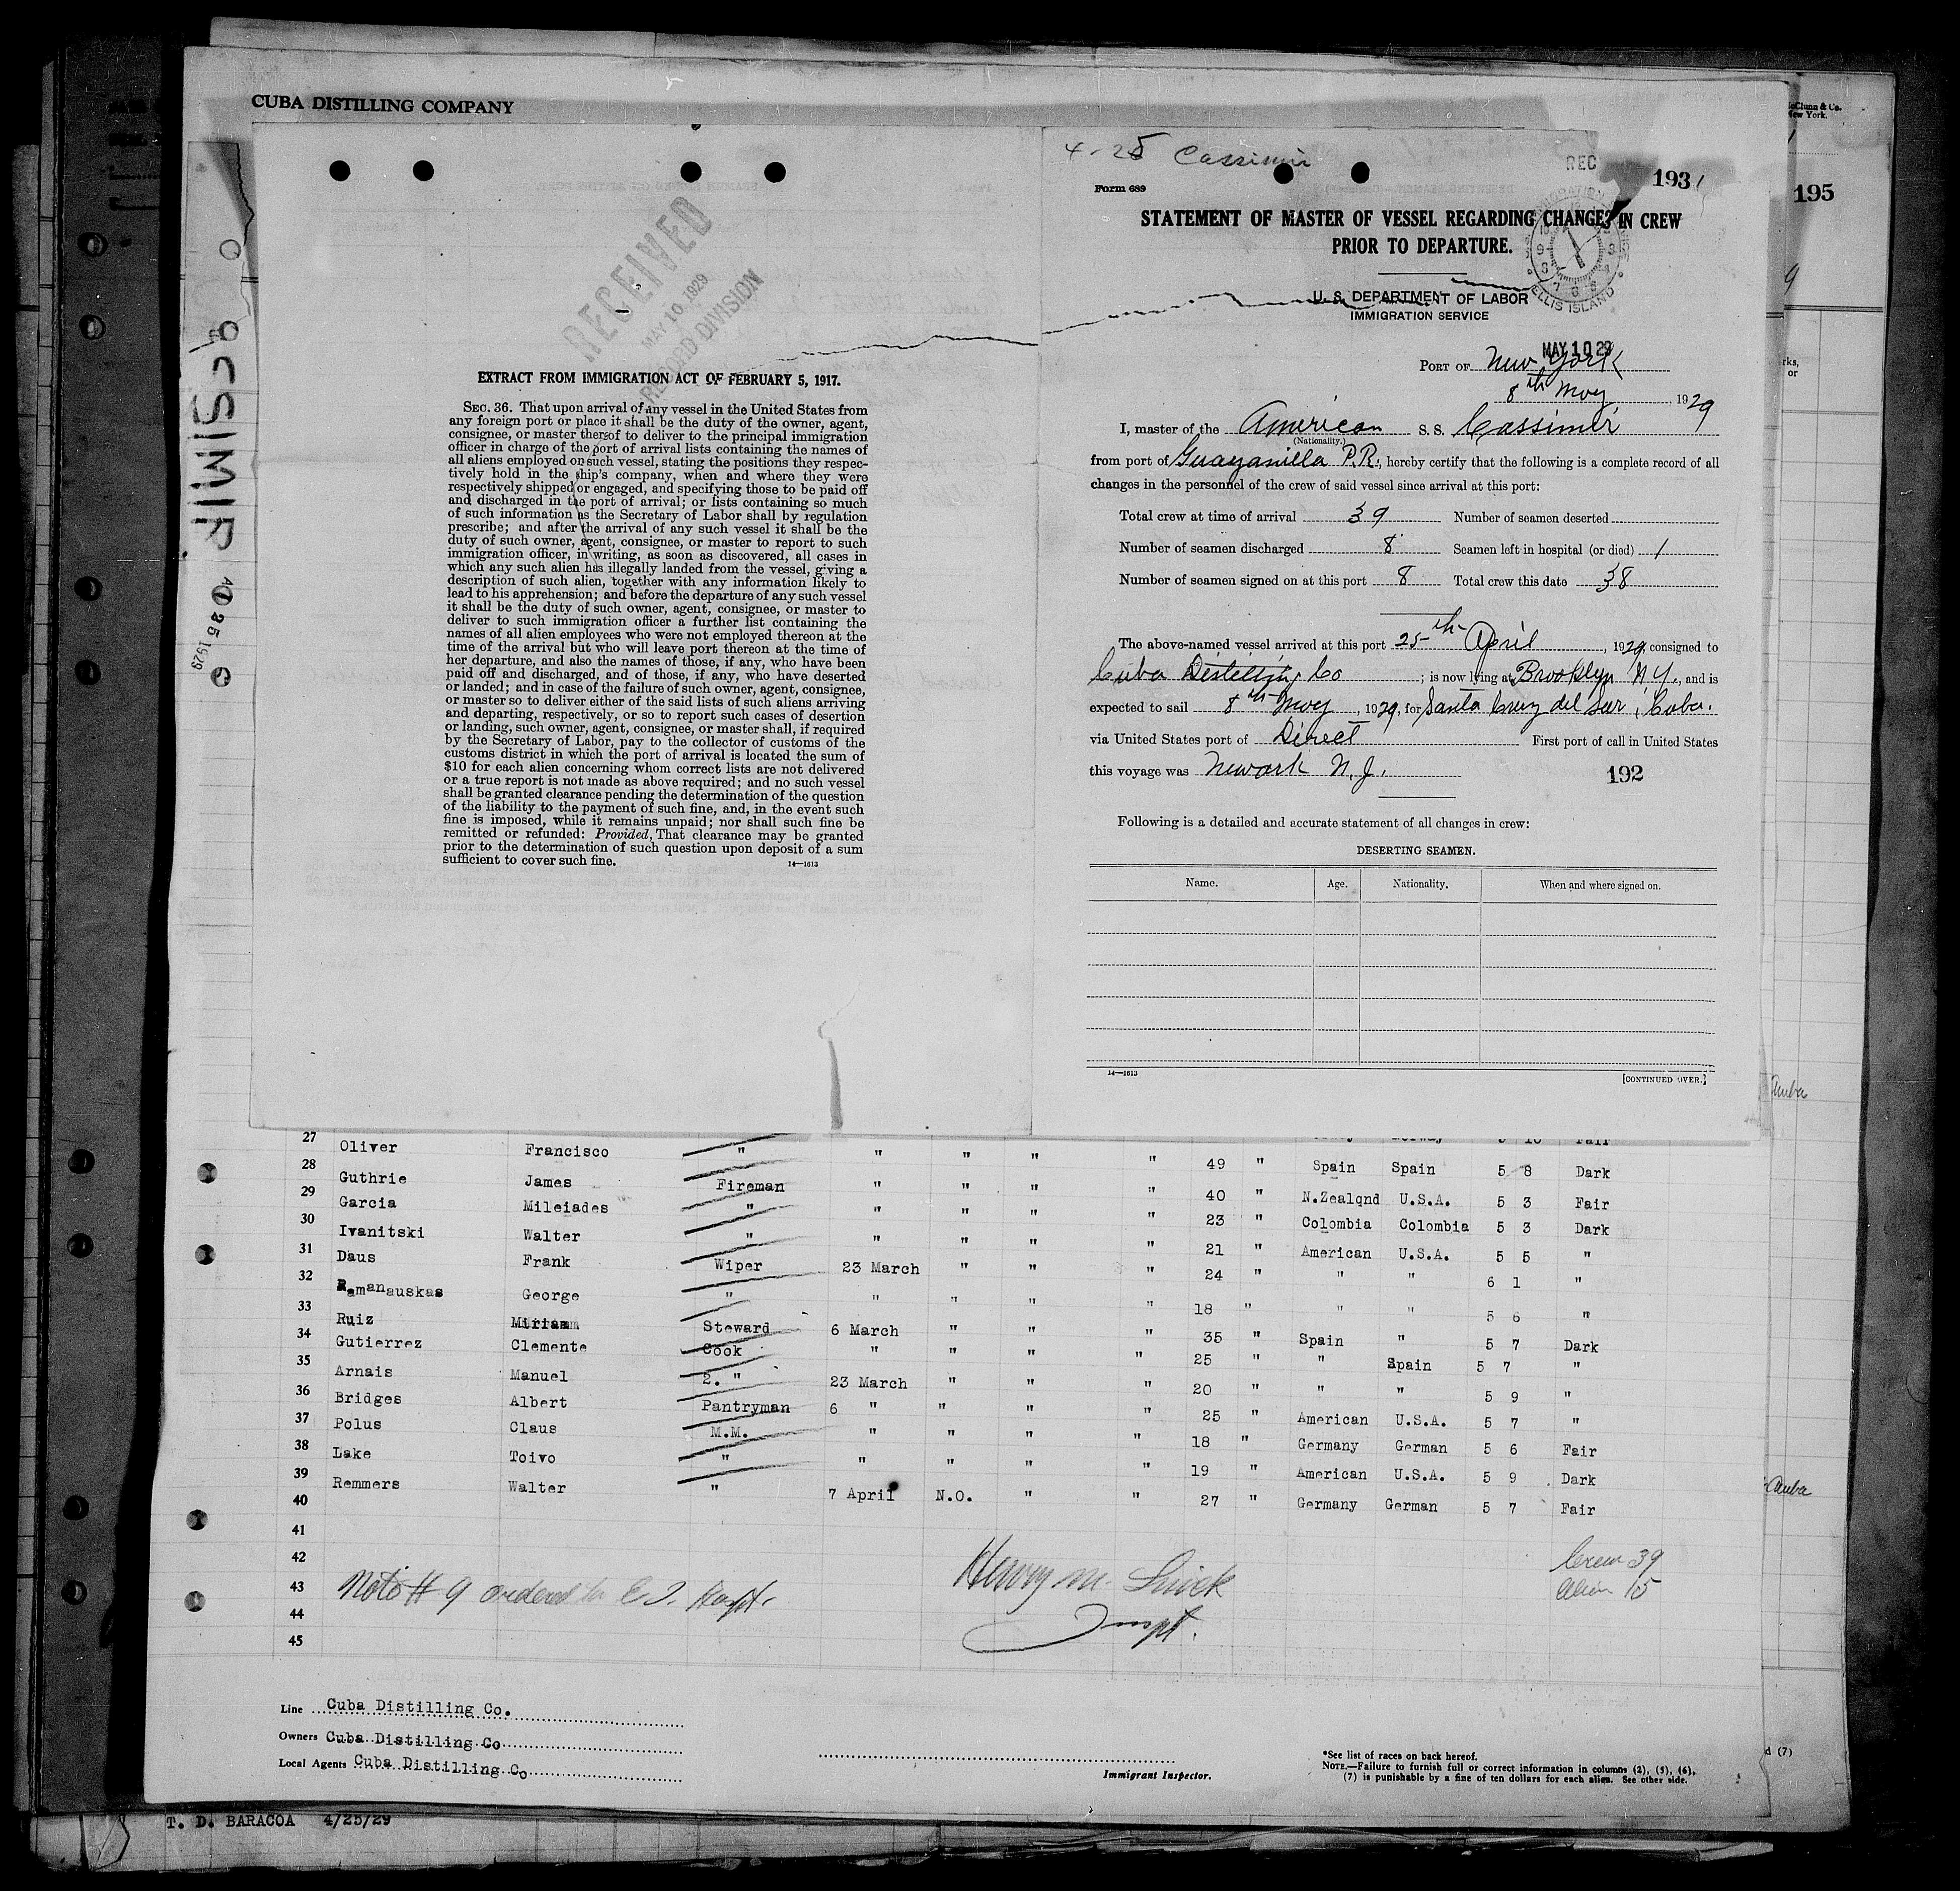 CUBA DISTILLING COMPANY
McClunn & Co.
New York.
195
CASSIMIR
1929
RECEIVED
MAY 10 1929
RECORD DIVISION
EXTRACT FROM IMMIGRATION ACT OF FEBRUARY 5, 1917.
SEC. 36. That upon arrival of any vessel in the United States from
any foreign port or place it shall be the duty of the owner, agent,
consignee, or master thereof to deliver to the principal immigration
officer in charge of the port of arrival lists containing the names of
all aliens employed on such vessel, stating the positions they respec-
tively hold in the ship's company, when and where they were
respectively shipped or engaged, and specifying those to be paid off
and discharged in the port of arrival; or lists containing so much
of such information as the Secretary of Labor shall by regulation
prescribe; and after the arrival of any such vessel it shall be the
duty of such owner, agent, consignee, or master to report to such
immigration officer, in writing, as soon as discovered, all cases in
which any such alien has illegally landed from the vessel, giving a
description of such alien, together with any information likely to
lead to his apprehension; and before the departure of any such vessel
it shall be the duty of such owner, agent, consignee, or master to
deliver to such immigration officer a further list containing the
names of all alien employees who were not employed thereon at the
time of the arrival but who will leave port thereon at the time of
her departure, and also the names of those, if any, who have been
paid off and discharged, and of those, if any, who have deserted
or landed; and in case of the failure of such owner, agent, consignee,
or master so to deliver either of the said lists of such aliens arriving
and departing, respectively, or so to report such cases of desertion
or landing, such owner, agent, consignee, or master shall, if required
by the Secretary of Labor, pay to the collector of customs of the
customs district in which the port of arrival is located the sum of
$10 for each alien concerning whom correct lists are not delivered
or a true report is not made as above required; and no such vessel
shall be granted clearance pending the determination of the question
of the liability to the payment of such fine, and, in the event such
fine is imposed, while it remains unpaid; nor shall such fine be
remitted or refunded: Provided, That clearance may be granted
prior to the determination of such question upon deposit of a sum
sufficient to cover such fine. 14—1613
4-25 Cassimir
REC
193
Form 689
STATEMENT OF MASTER OF VESSEL REGARDING CHANGES IN CREW
PRIOR TO DEPARTURE.
ELLIS ISLAND
U. S. DEPARTMENT OF LABOR
IMMIGRATION SERVICE
MAY 10 29
PORT OF New York
8th May, 1929
I, master of the American S. S. Cassimir
(Nationality.)
from port of Guayanilla P.R., hereby certify that the following is a complete record of all
changes in the personnel of the crew of said vessel since arrival at this port:
Total crew at time of arrival 39 Number of seamen deserted
Number of seamen discharged 8 Seamen left in hospital (or died) 1
Number of seamen signed on at this port 8 Total crew this date 38
The above-named vessel arrived at this port 25th April, 1929, consigned to
Cuba Distilling Co; is now lying at Brooklyn N.Y., and is
expected to sail 8th May, 1929, for Santa Cruz del Sur, Cuba.
via United States port of Direct First port of call in United States
this voyage was Newark N.J.
192
Following is a detailed and accurate statement of all changes in crew:
DESERTING SEAMEN.
Name. Age. Nationality. When and where signed on.
14—1613 [CONTINUED OVER.]
27 Oliver Francisco " " " " " 49 " Spain Spain 5 8 Dark
28 Guthrie James Fireman " " " " 40 " N.Zealqnd U.S.A. 5 3 Fair
29 Garcia Mileiades " " " " " 23 " Colombia Colombia 5 3 Dark
30 Ivanitski Walter " " " " " 21 " American U.S.A. 5 5 "
31 Daus Frank Wiper 23 March " " " 24 " " " 6 1 "
32 Ramanauskas George " " " " " 18 " " " 5 6 "
33 Ruiz Miriamm Steward 6 March " " " 35 " Spain " 5 7 Dark
34 Gutierrez Clemente Cook " " " " 25 " " Spain 5 7 "
35 Arnais Manuel 2. " 23 March " " " 20 " " " 5 9 "
36 Bridges Albert Pantryman 6 " " " " 25 " American U.S.A. 5 7 "
37 Polus Claus M.M. " " " " 18 " Germany German 5 6 Fair
38 Lake Toivo " " " " " 19 " American U.S.A. 5 9 Dark
39 Remmers Walter " 7 April N.O. " " 27 " Germany German 5 7 Fair
40
41
42
43
44
45
Note # 9 ordered to E.I. Hospt.
Henry M.
Inspt.
Crew 39
Alien 15
Line Cuba Distilling Co.
Owners Cuba Distilling Co
Local Agents Cuba Distilling Co
Immigrant Inspector.
*See list of races on back hereof.
NOTE.—Failure to furnish full or correct information in columns (2), (5), (6),
(7) is punishable by a fine of ten dollars for each alien. See other side.
T. D. BARACOA 4/25/29